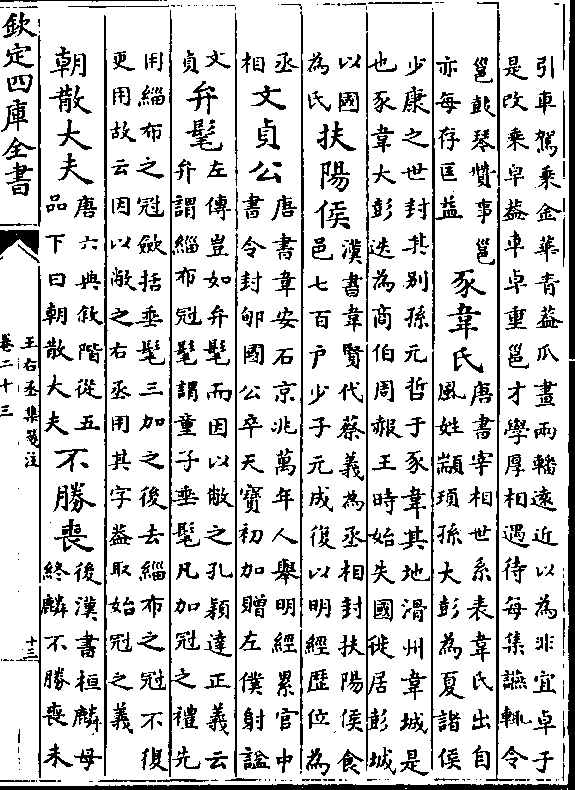 引車駕乘金華青葢爪畫兩轓遠近以為非宜卓于
是改乘皁葢車卓重邕才學厚相遇待每集讌輒令
邕鼓琴贊事邕
亦每存匡益
豕韋氏
唐書宰相世系表韋氏出自
風姓顓頊孫大彭為夏諸侯
少康之世封其別孫元哲于豕韋其地滑州韋城是
也豕韋大彭迭為商伯周赧王時始失國徙居彭城
以國
為氏
扶陽侯
漢書韋賢代蔡義為丞相封扶陽侯食
邑七百戸少子元成復以明經歴位為
丞
相
文貞公
唐書韋安石京兆萬年人舉明經累官中
書令封郇國公卒天寳初加贈左僕射諡
文
貞
弁髦
左傳豈如弁髦而因以敝之孔穎達正義云
弁謂緇布冠髦謂童子垂髦凡加冠之禮先
用緇布之冠斂括垂髦三加之後去緇布之冠不復
更用故云因以敝之右丞用其字葢取始冠之義
朝散大夫
唐六典敘階從五
品下曰朝散大夫
不勝喪
後漢書桓麟母
終麟不勝喪未
欽定四庫全書
王右丞集箋注
卷二十三
十三